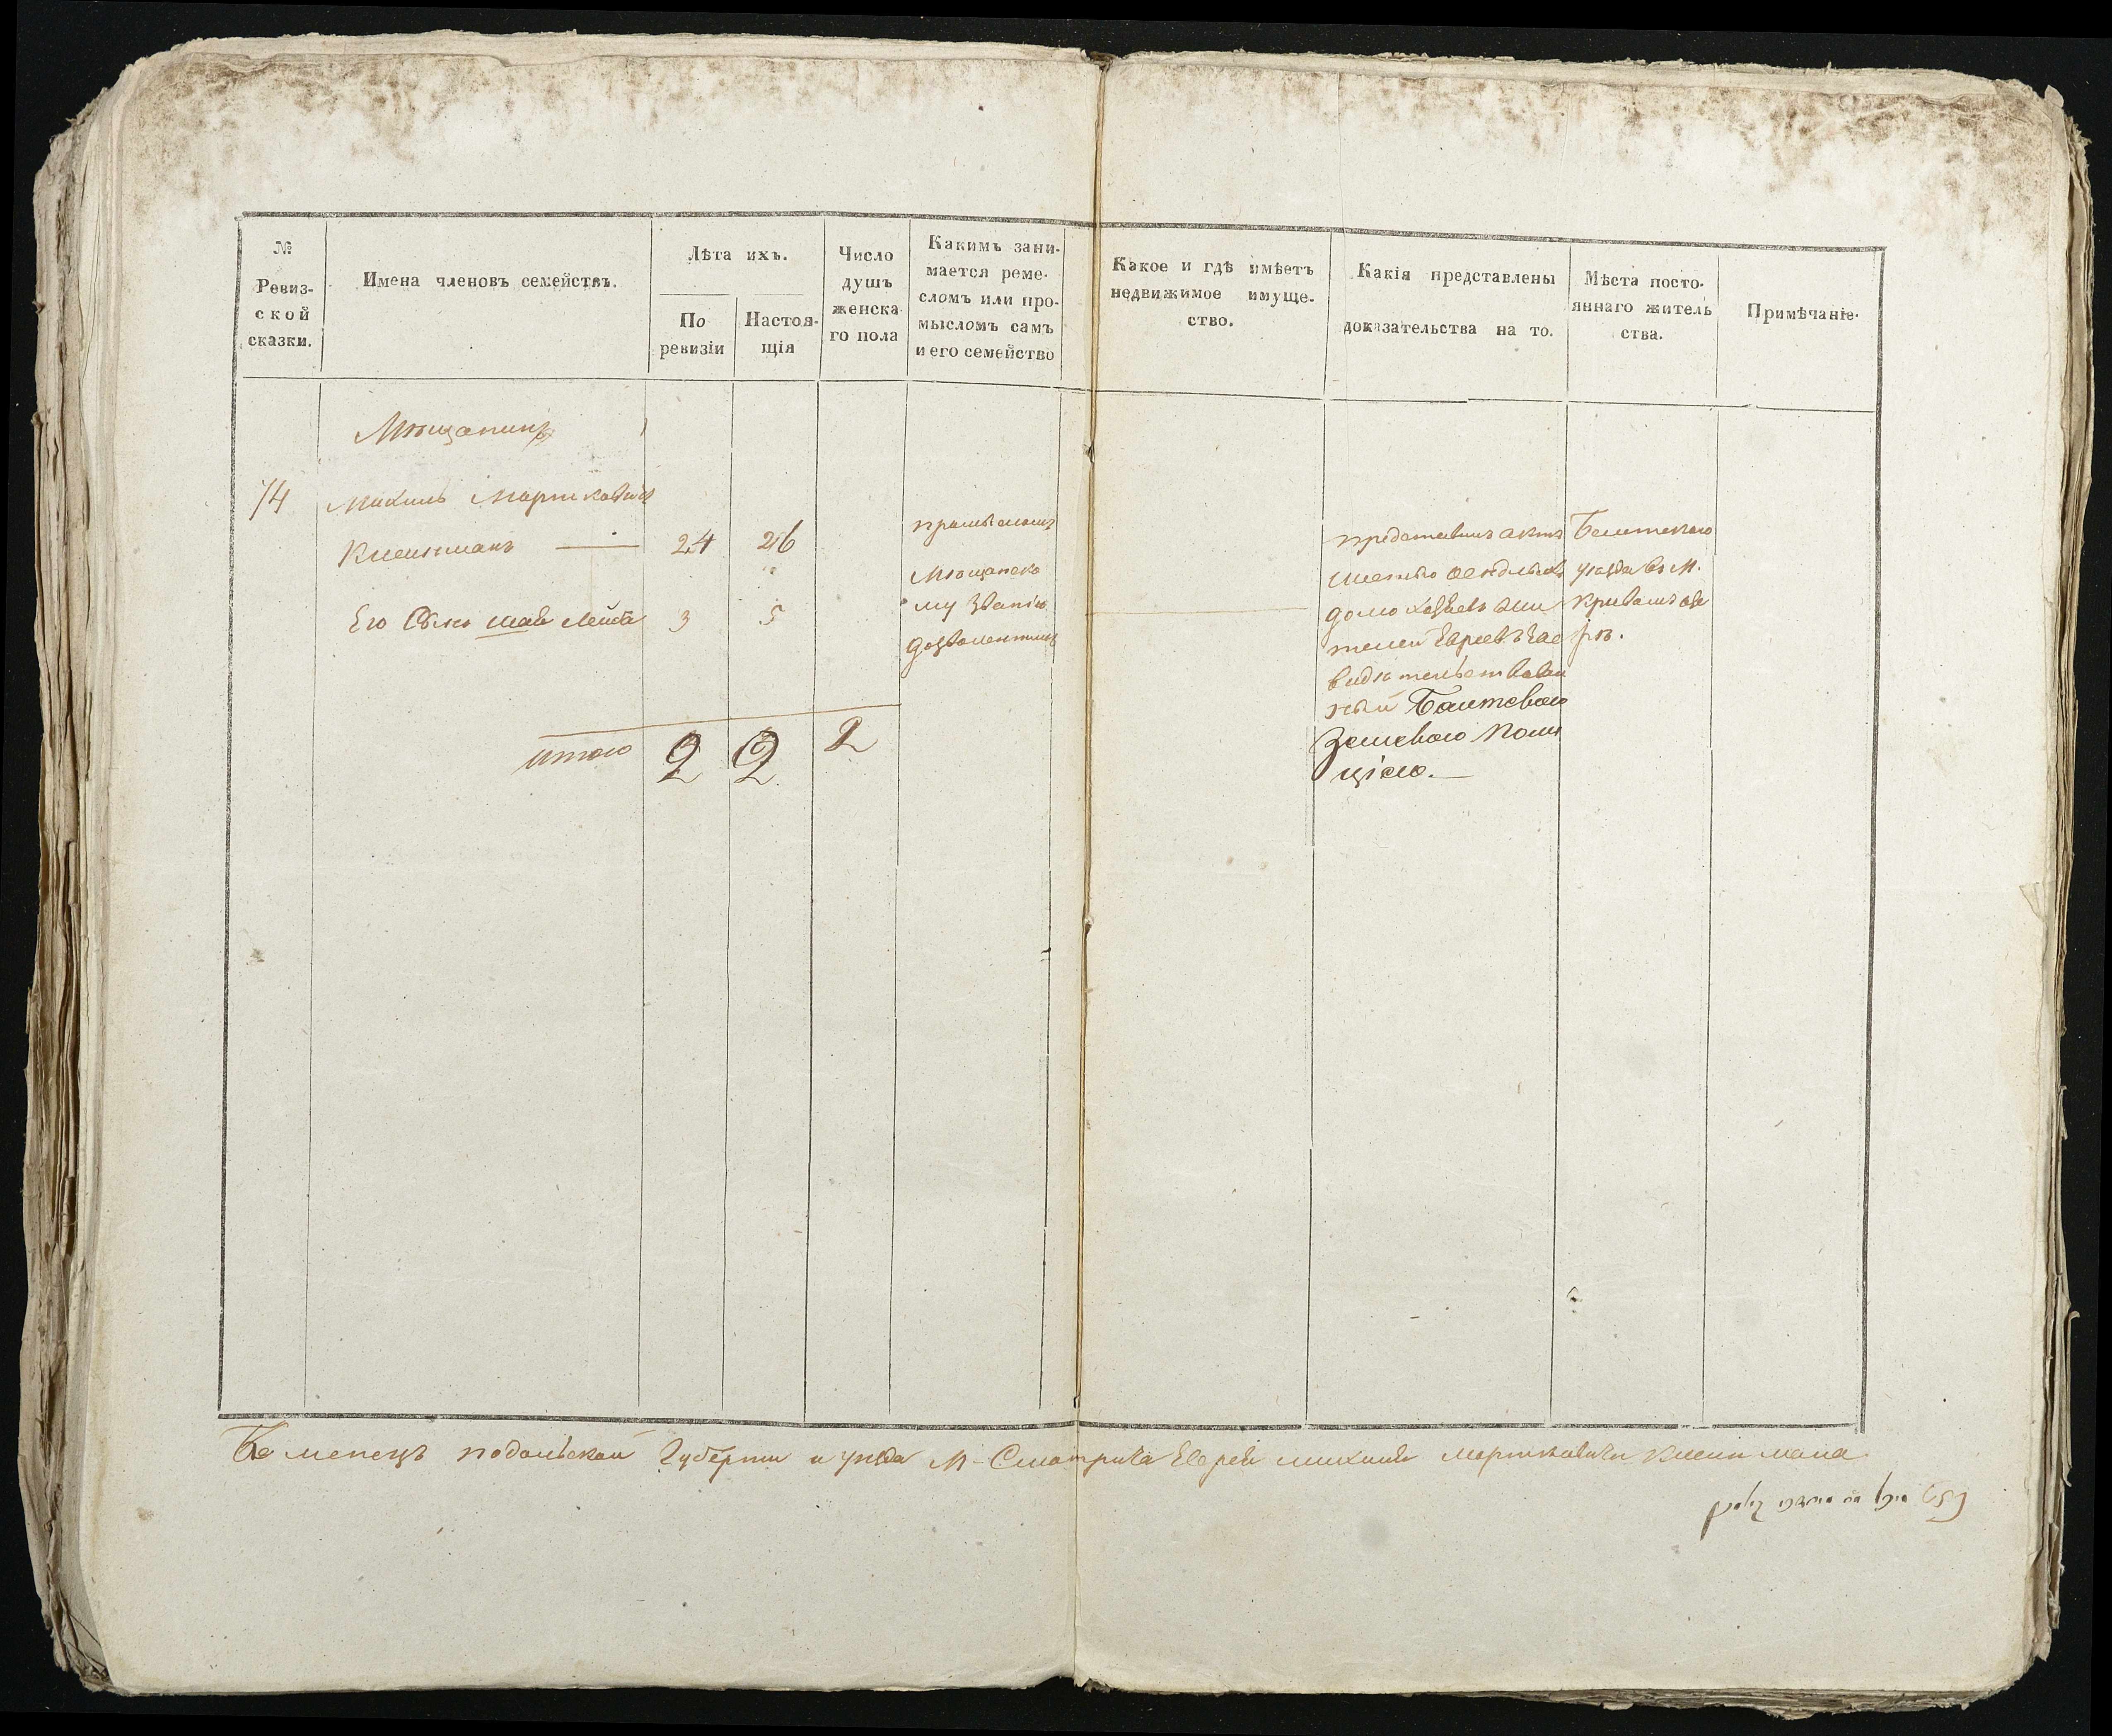 №
Ревиз-
ской
сказки.
Имена членовъ семействъ.
Лѣта ихъ.
По
ревизіи
Настоя-
щія
Число
душъ
женска-
го пола
Какимъ зани-
мается реме-
сломъ или про-
мысломъ самъ
и его семейство
Какое и гдѣ имѣетъ
недвижимое имуще-
ство.
Какія представлены
доказательства на то.
Мѣста посто-
яннаго житель
ства.
Примѣчаніе.
Мѣщанинъ
74 Михиль Мортковичъ
Клейнманъ — 24 26
Его Сынъ Лейба 3 5
итого 2 2 2
промысломъ
Мѣщанско
му званію
дозволеннымъ
представилъ актъ
шестью
домо хозяевъ жи
телей Евреевъ Зас
видѣтельствован
ный Балтскою
Земскою Поли
ціею.—
Балтскаго
уѣзда въ М.
Кривомъ озе
рѣ.
Каменецъ подольской Губерни и уезда М. Смотрича Еврей Михиль Мортковичъ Клейнмана